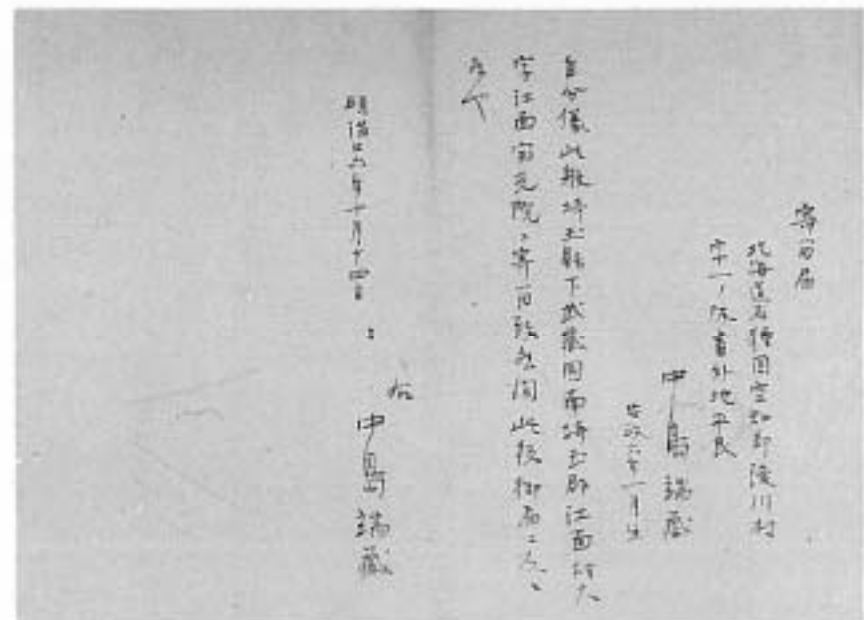 寄留届
北海道石狩国空知郡滝川村
字一ノ坂番外地平民
中島端蔵
安政六年一月生
自分儀此般埼玉縣下武蔵国南埼玉郡江面村大
字江面留光院ニ寄留致候間此段御届ニ及ヒ
候也
明治廿六年十月十四日
右
中島端蔵